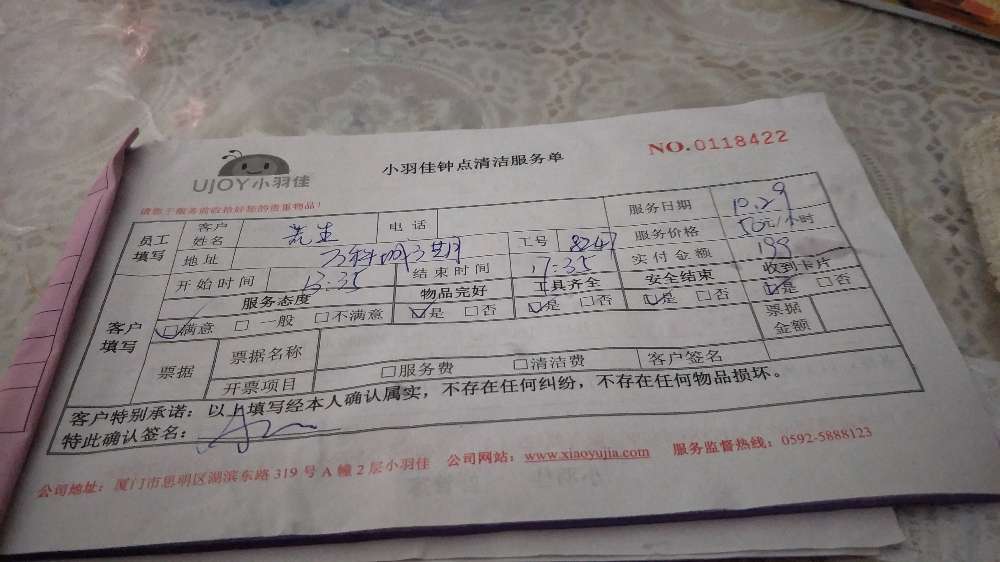 UJOY小羽佳
小羽佳钟点清洁服务单
NO.0118422
请您于服务前收拾好您的贵重物品!
员工填写 客户姓名 先生 电话 服务日期 10.29
地址 工号 8247 服务价格 50元/小时
开始时间 13:35 结束时间 17:35 实付金额 199
客户填写 服务态度 物品完好 工具齐全 安全结束 收到卡片
☑满意 □一般 □不满意 ☑是 □否 ☑是 □否 ☑是 □否 ☑是 □否
票据 票据名称 票据金额
开票项目 □服务费 □清洁费 客户签名
客户特别承诺:以上填写经本人确认属实,不存在任何纠纷,不存在任何物品损坏。
特此确认签名:
公司地址:厦门市思明区湖滨东路319号A幢2层小羽佳 公司网站:www.xiaoyujia.com 服务监督热线:0592-5888123